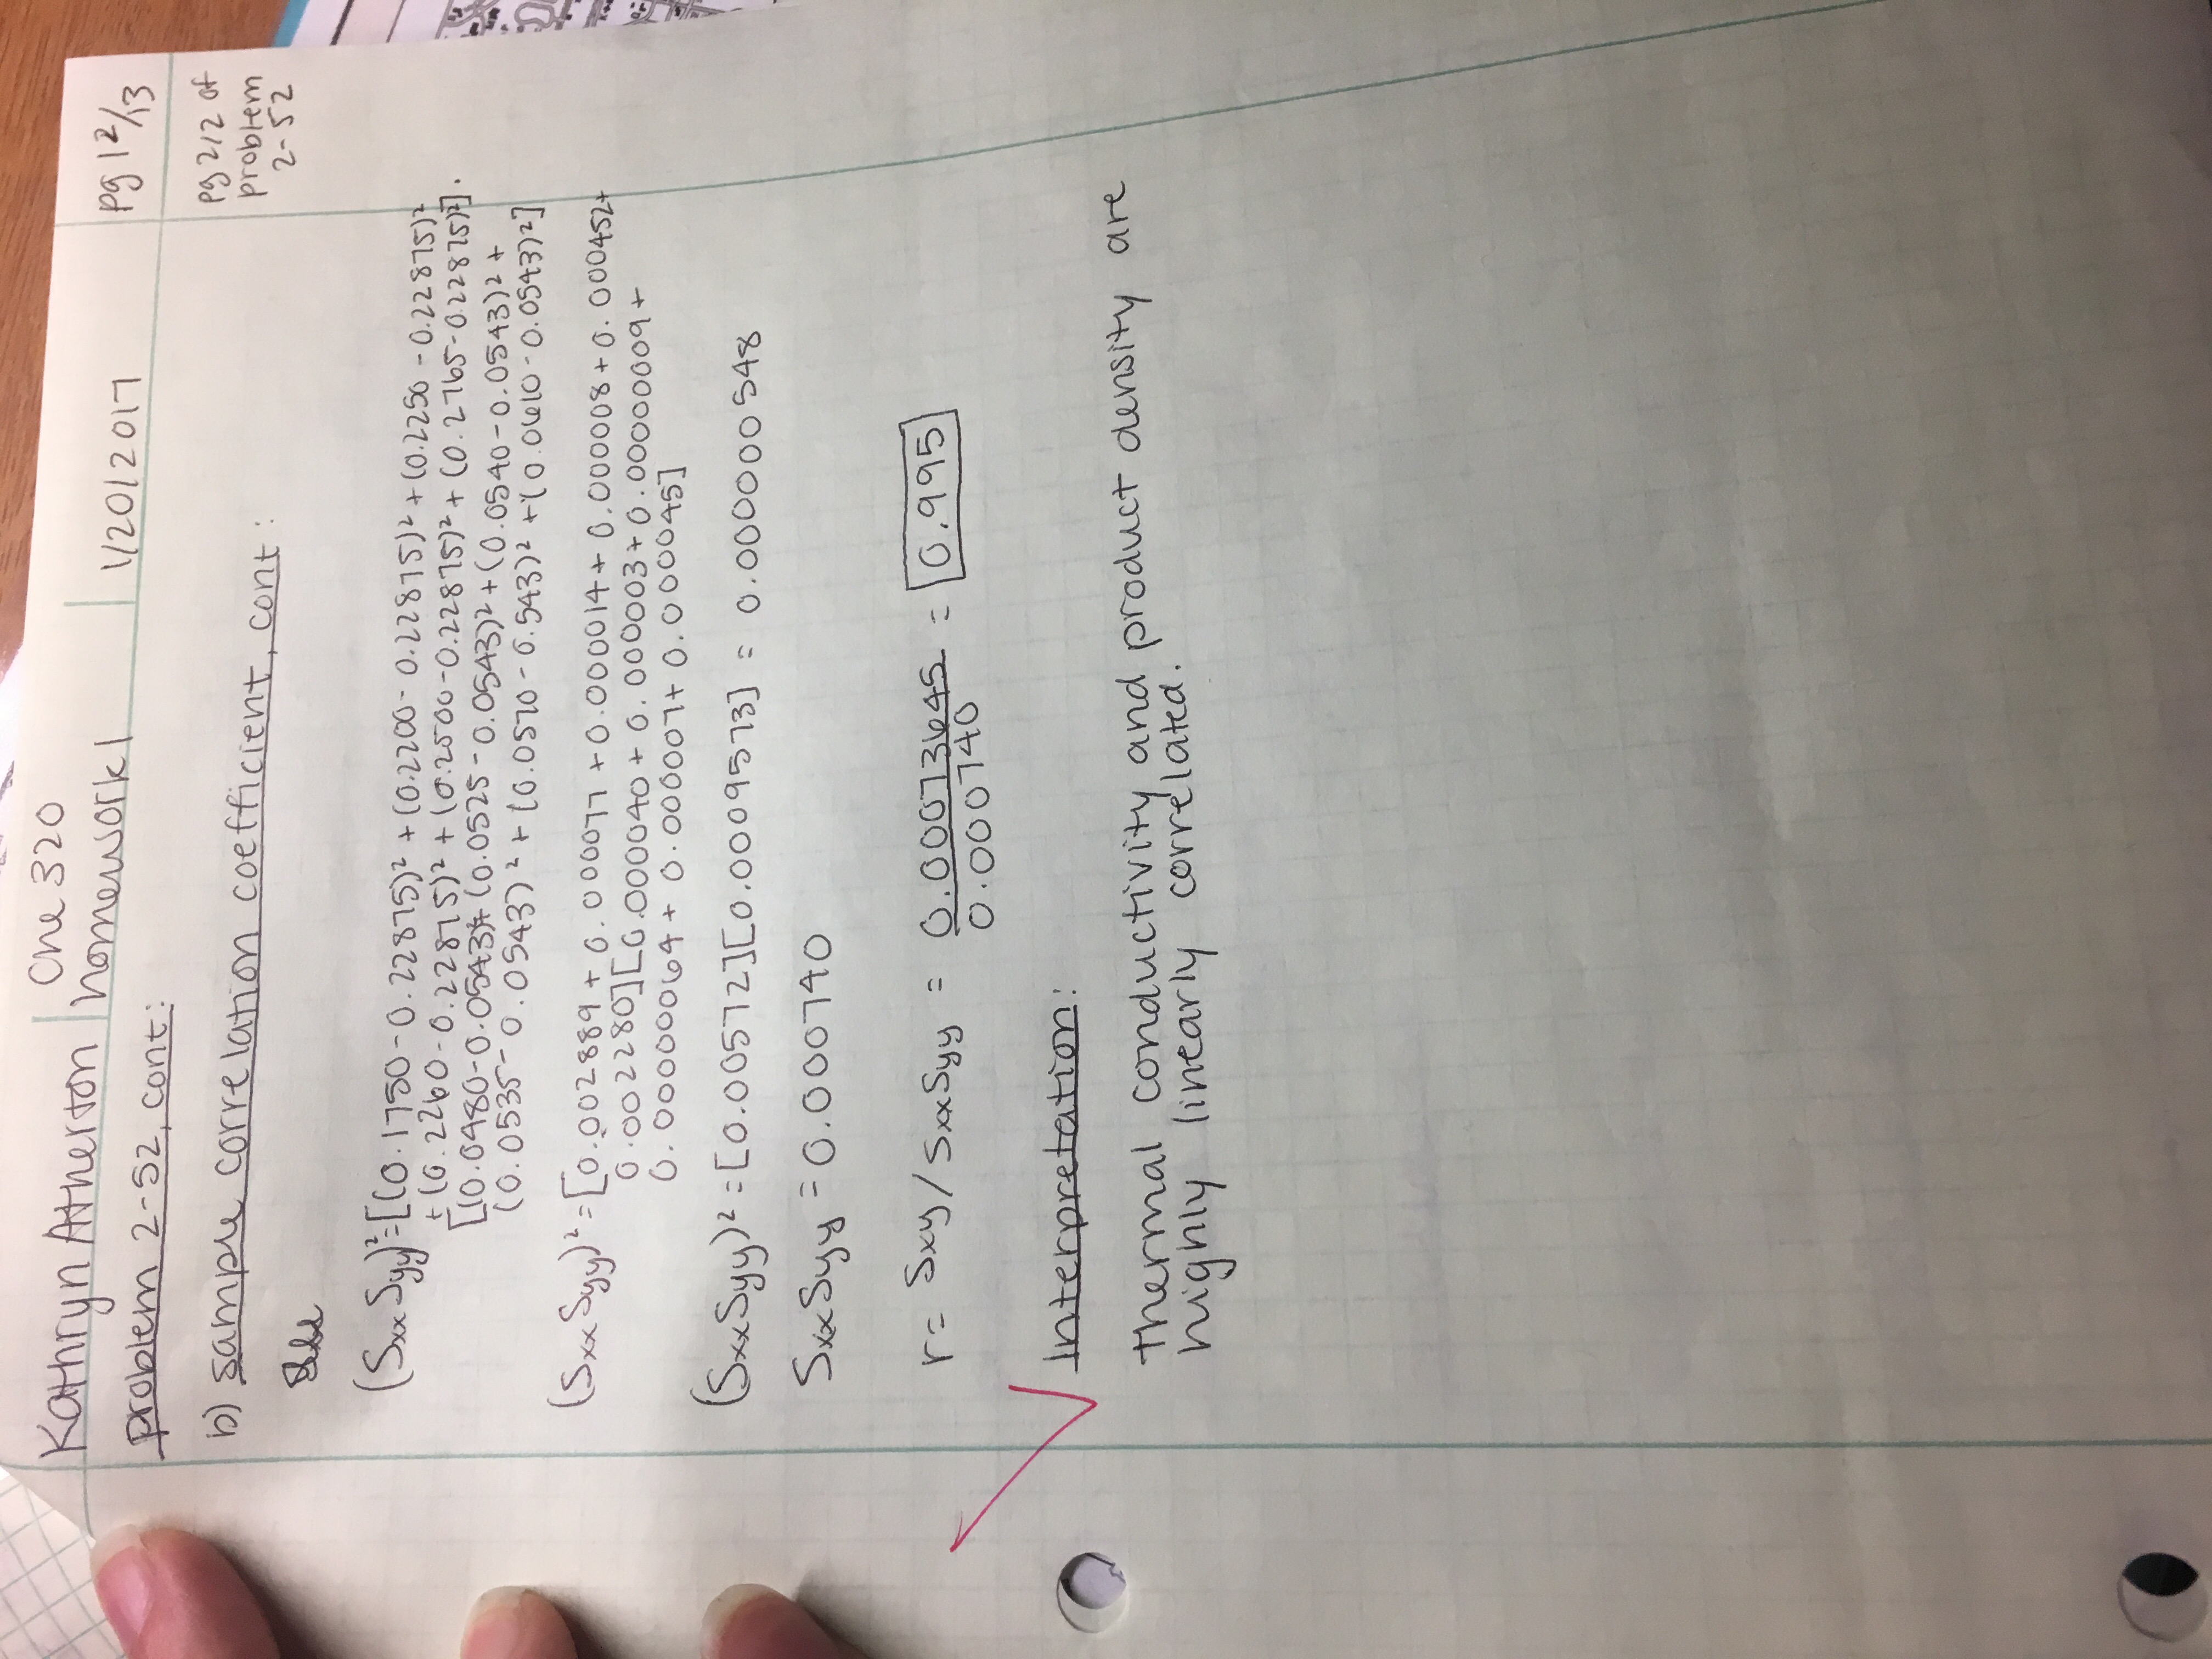 Kathryn Atherton
Che 320
homework 1
1/20/2017
pg 12/13
problem 2-52, cont:
pg 2/2 of
problem
2-52
b) sample correlation coefficient, cont:
(Sxx Syy)²=[(0.1750-0.22875)² + (0.2200-0.22875)² + (0.2250-0.22875)²
+ (0.2260-0.22875)² + (0.2500-0.22875)² + (0.2765-0.22875)²] ·
[(0.0480-0.0543)²+ (0.0525-0.0543)² + (0.0540-0.0543)² +
(0.0535-0.0543)² + (0.0570-0.543)² + (0.0610-0.0543)²]
(Sxx Syy)²=[0.002889 + 0.000077 + 0.000014 + 0.000008 + 0.000452+
0.002280][0.000040 + 0.000003 + 0.00000009 +
0.00000064 + 0.000007 + 0.000045]
(SxxSyy)² = [0.00572][0.0009573] = 0.000000548
SxxSyy = 0.000740
r = Sxy/SxxSyy = 0.00073645/0.000740 = 0.995
Interpretation:
thermal conductivity and product density are
highly linearly correlated.